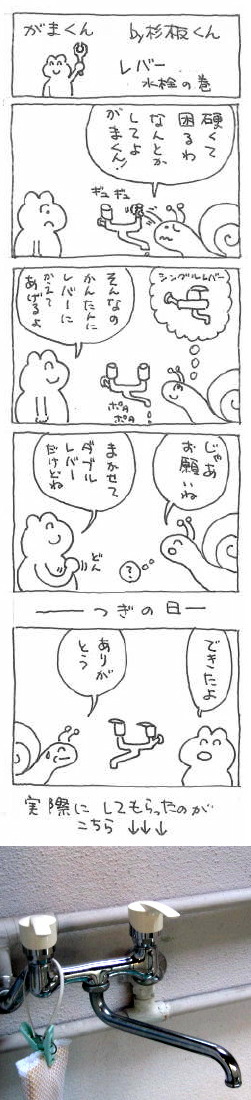 がまくん　by杉板くん
レバー
水栓の巻
硬くて
困るわ
なんとか
してよ
がまくん!
ギュギュ
シングルレバー
そんなの
かんたんに
レバーに
かえて
あげるよ
ポタ
ポタ
じゃあ
お願いね
まかせて
ダブル
レバー
だけどね
どん
?
つぎの日
できたよ
ありが
とう
実際にしてもらったのが
こちら↓↓↓